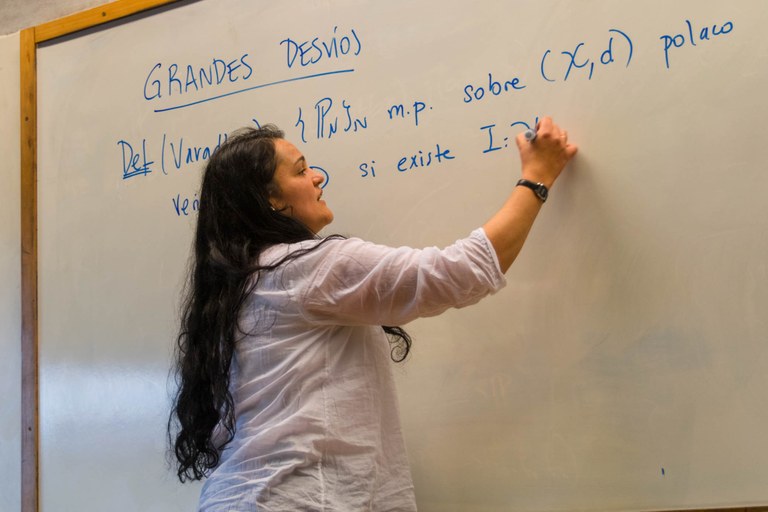 GRANDES DESVÍOS
Def {ℙ_N}_N m.p. sobre (X,d) polaco
si existe I: